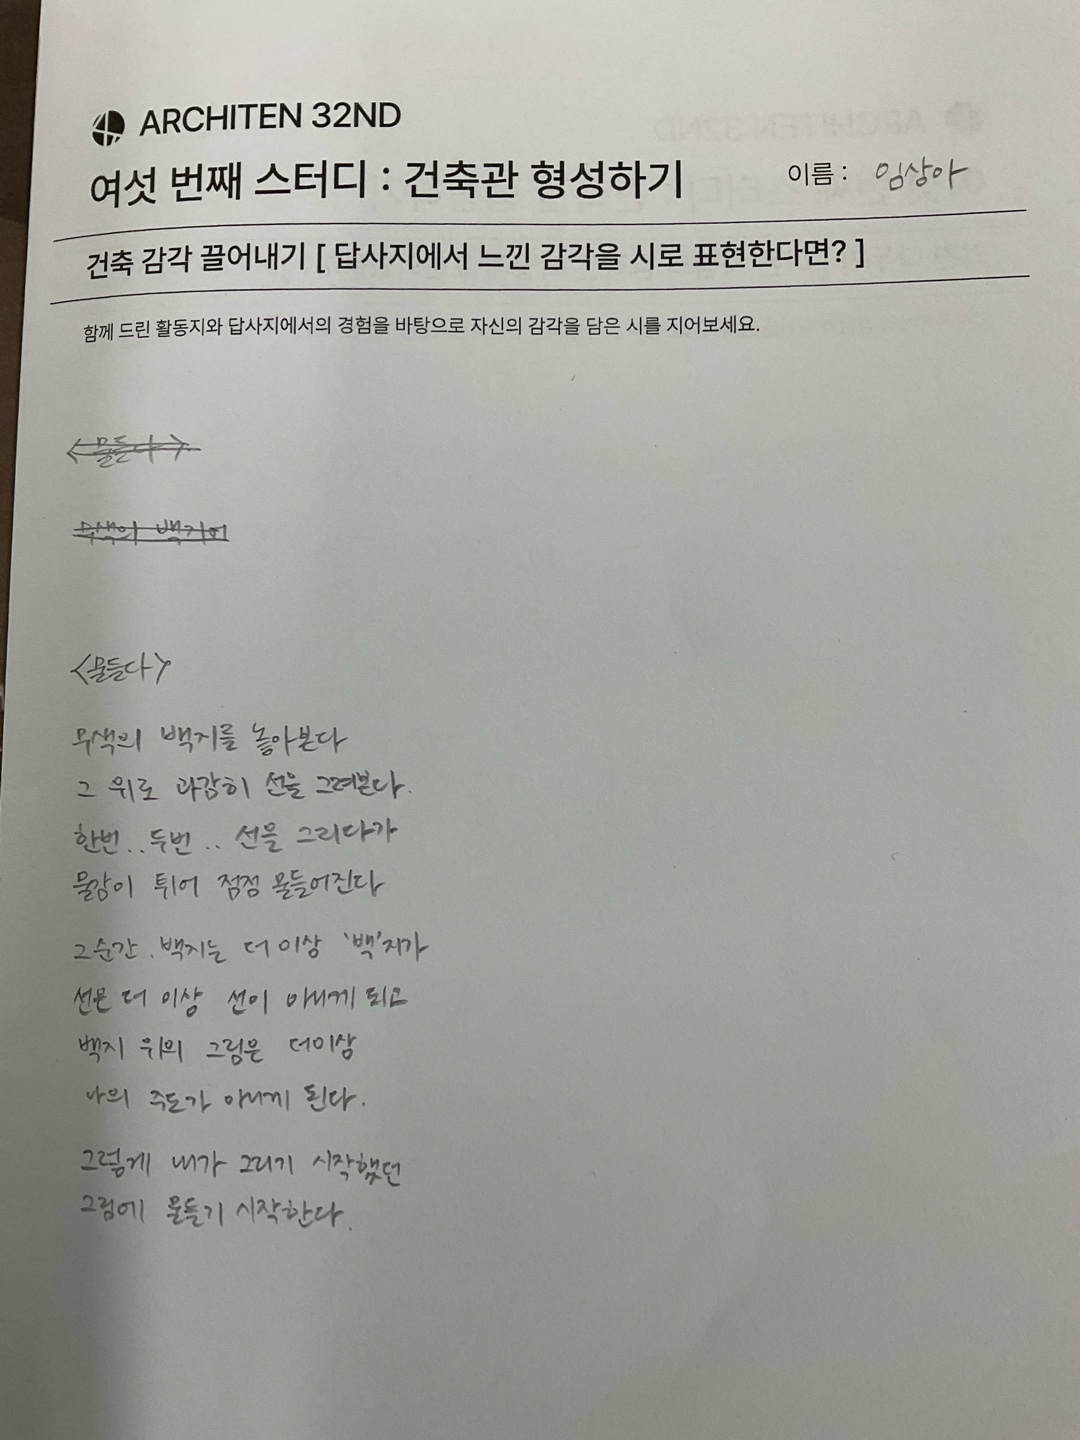 ARCHITEN 32ND
여섯 번째 스터디 : 건축관 형성하기
이름 : 임상아
건축 감각 끌어내기 [ 답사지에서 느낀 감각을 시로 표현한다면? ]
함께 드린 활동지와 답사지에서의 경험을 바탕으로 자신의 감각을 담은 시를 지어보세요.
<물든다>
무색의 백지에
<물들다>
무색의 백지를 놓아본다
그 위로 과감히 선을 그려본다.
한번.. 두번.. 선을 그리다가
물감이 튀어 점점 물들어진다
그순간. 백지는 더 이상 '백'지가
선은 더 이상 선이 아니게 되고
백지 위의 그림은 더이상
나의 주도가 아니게 된다.
그렇게 내가 그리기 시작했던
그림에 물들기 시작한다.